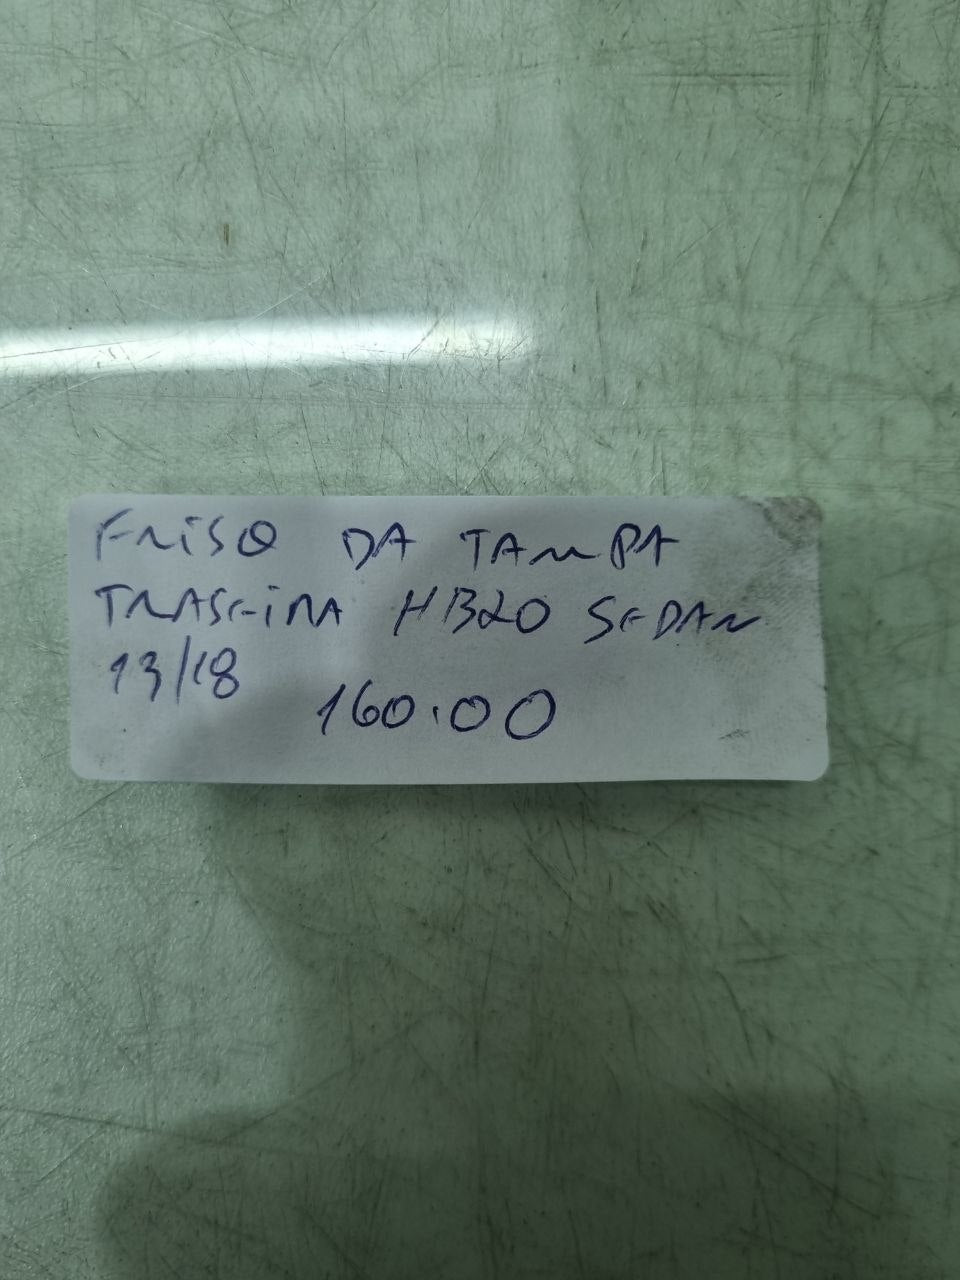 FRISO DA TAMPA
TRASEIRA HB20 SEDAN
13/18
160.00